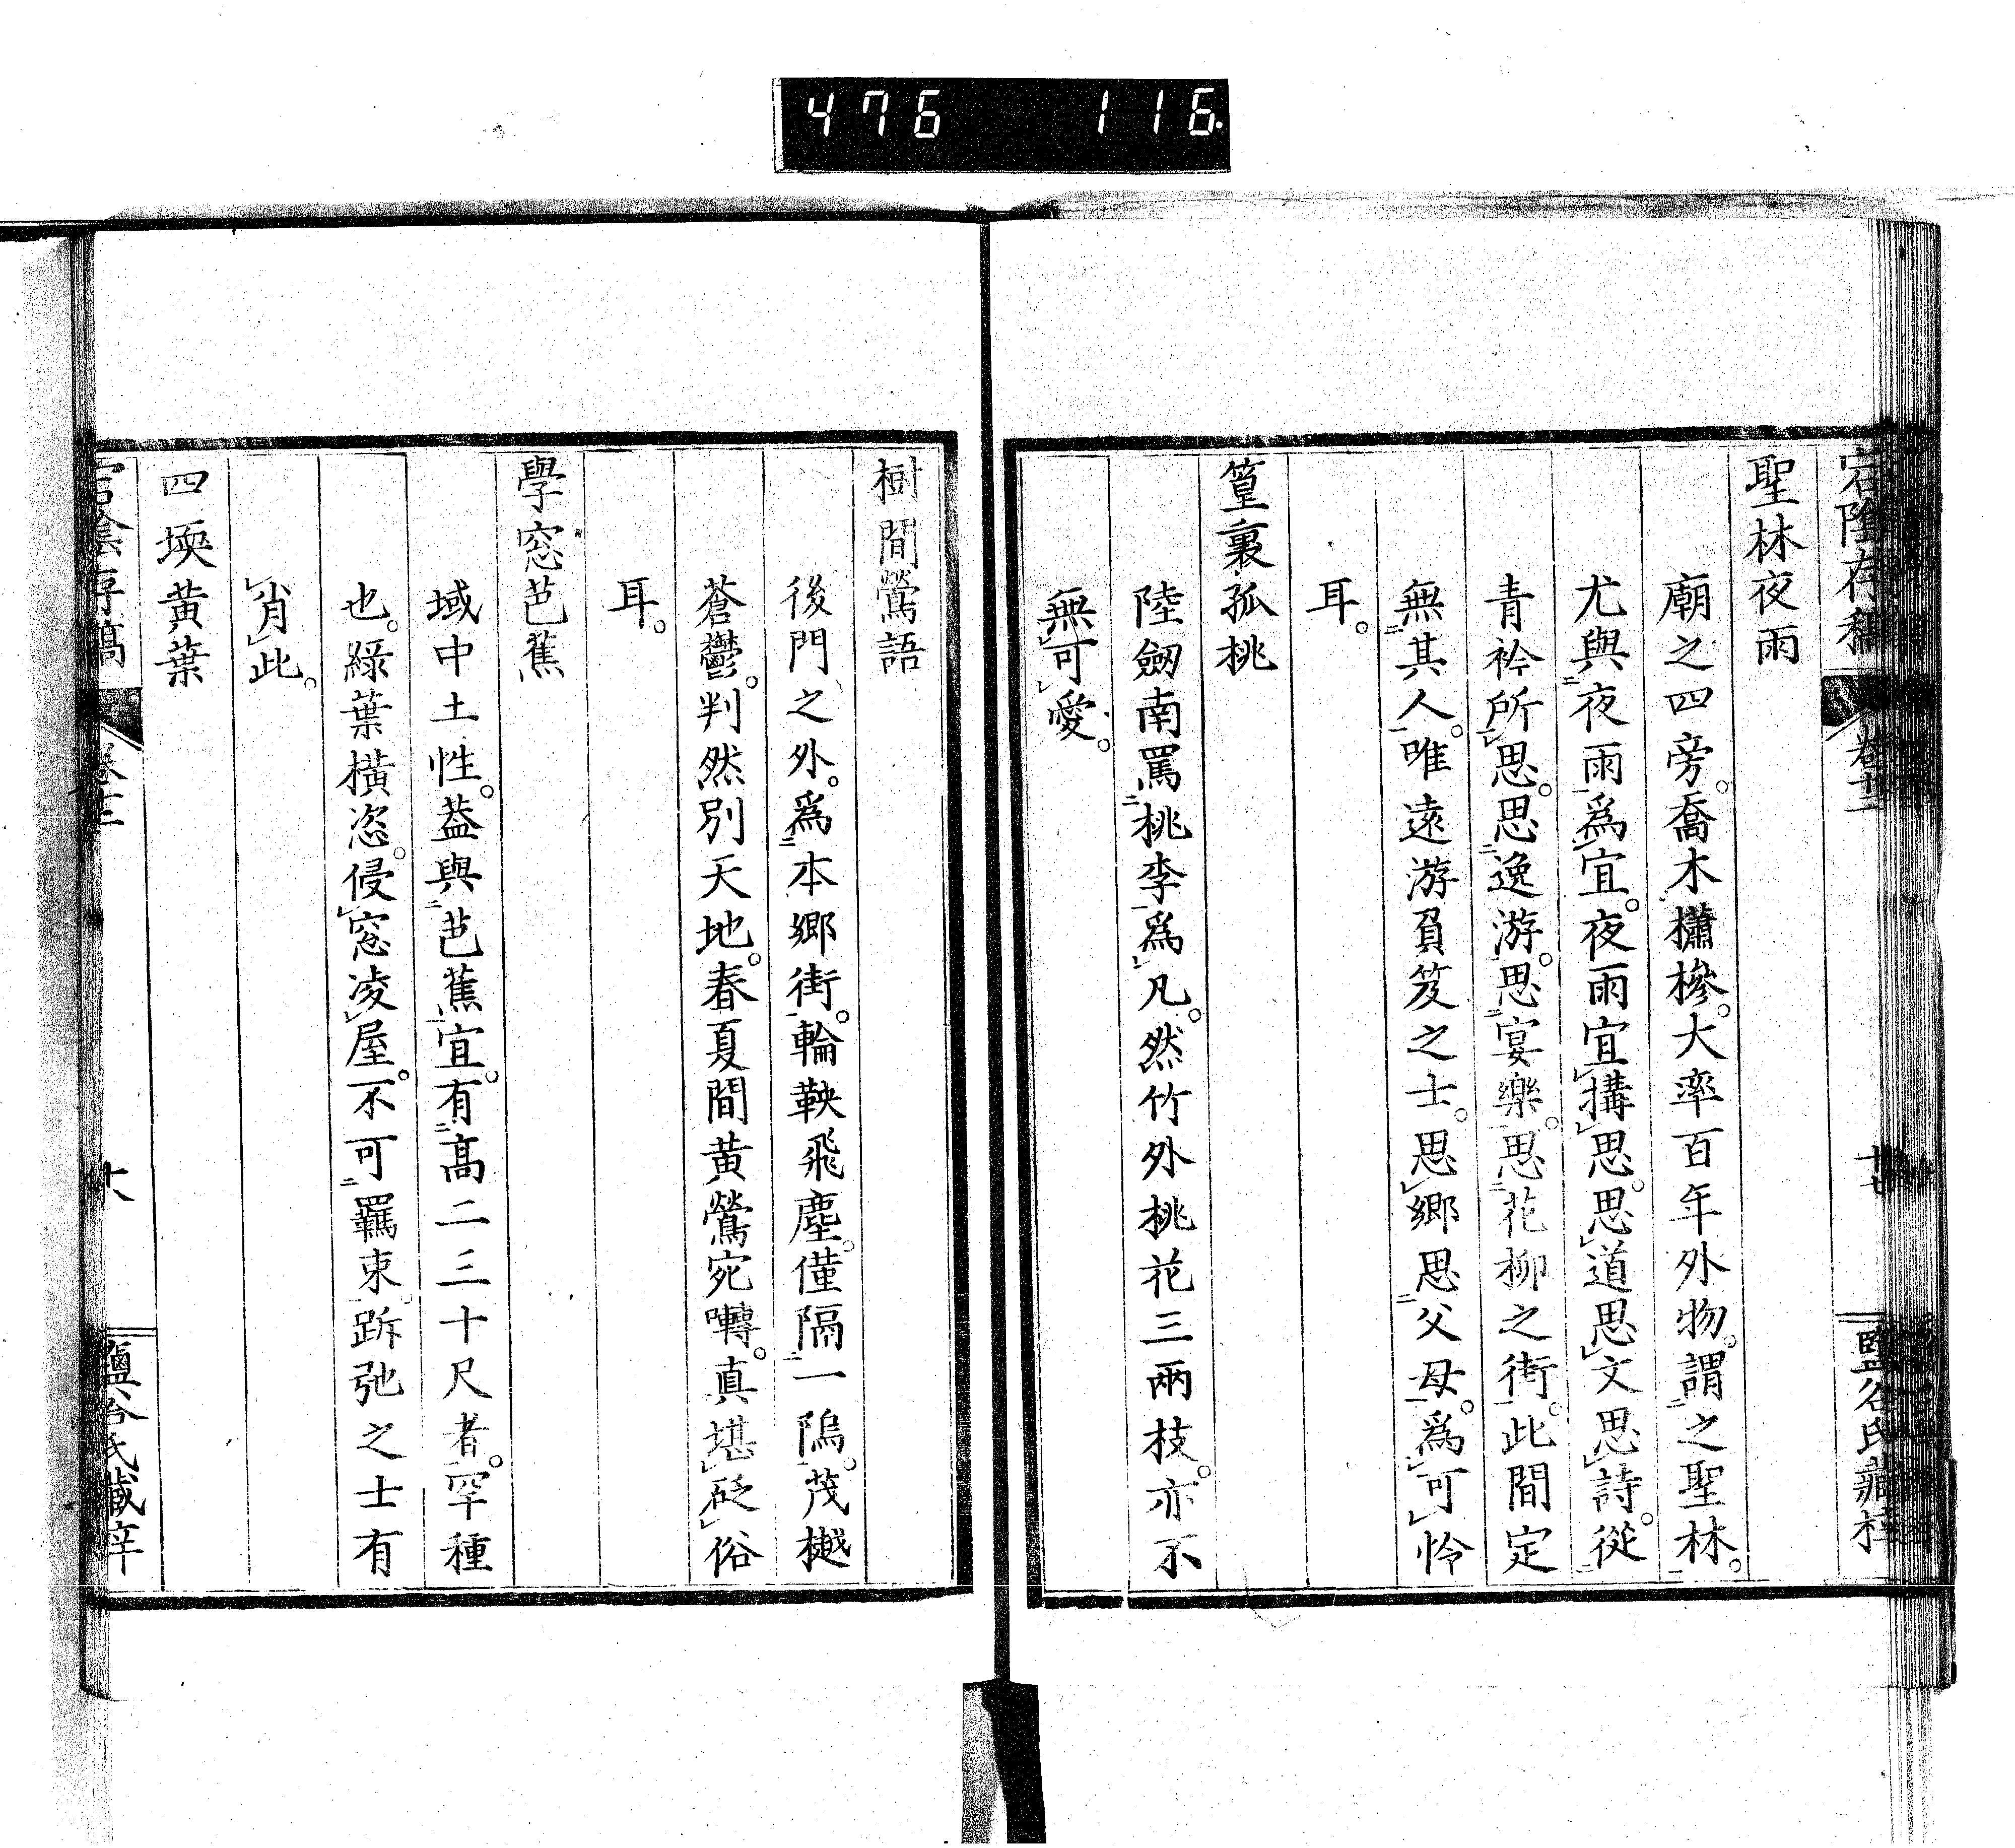 476 116.
宕陰存稿 卷十二 十七 鹽谷氏藏梓
聖林夜雨
廟之四旁。喬木櫹槮。大率百年外物。謂之聖林。
尤與夜雨爲宜。夜雨宜搆思。思道思文思詩。從
青衿所思。思逸游。思宴樂。思花柳之街。此間定
無其人。唯遠游負笈之士。思鄉思父母。爲可怜
耳。
篁裏孤桃
陸劒南罵桃李爲凡。然竹外桃花三兩枝。亦不
無可愛。
樹間鶯語
後門之外。爲本鄉街。輪鞅飛塵。僅隔一隖。茂樾
蒼鬱。判然別天地。春夏間黃鶯宛囀。真堪砭俗
耳。
學窓芭蕉
域中土性。葢與芭蕉宜。有高二三十尺者。罕種
也。綠葉橫恣。侵窓凌屋。不可羈束。跅弛之士有
肖此。
四堧黃葉
宕陰存稿 卷十二 十八 鹽谷氏藏梓